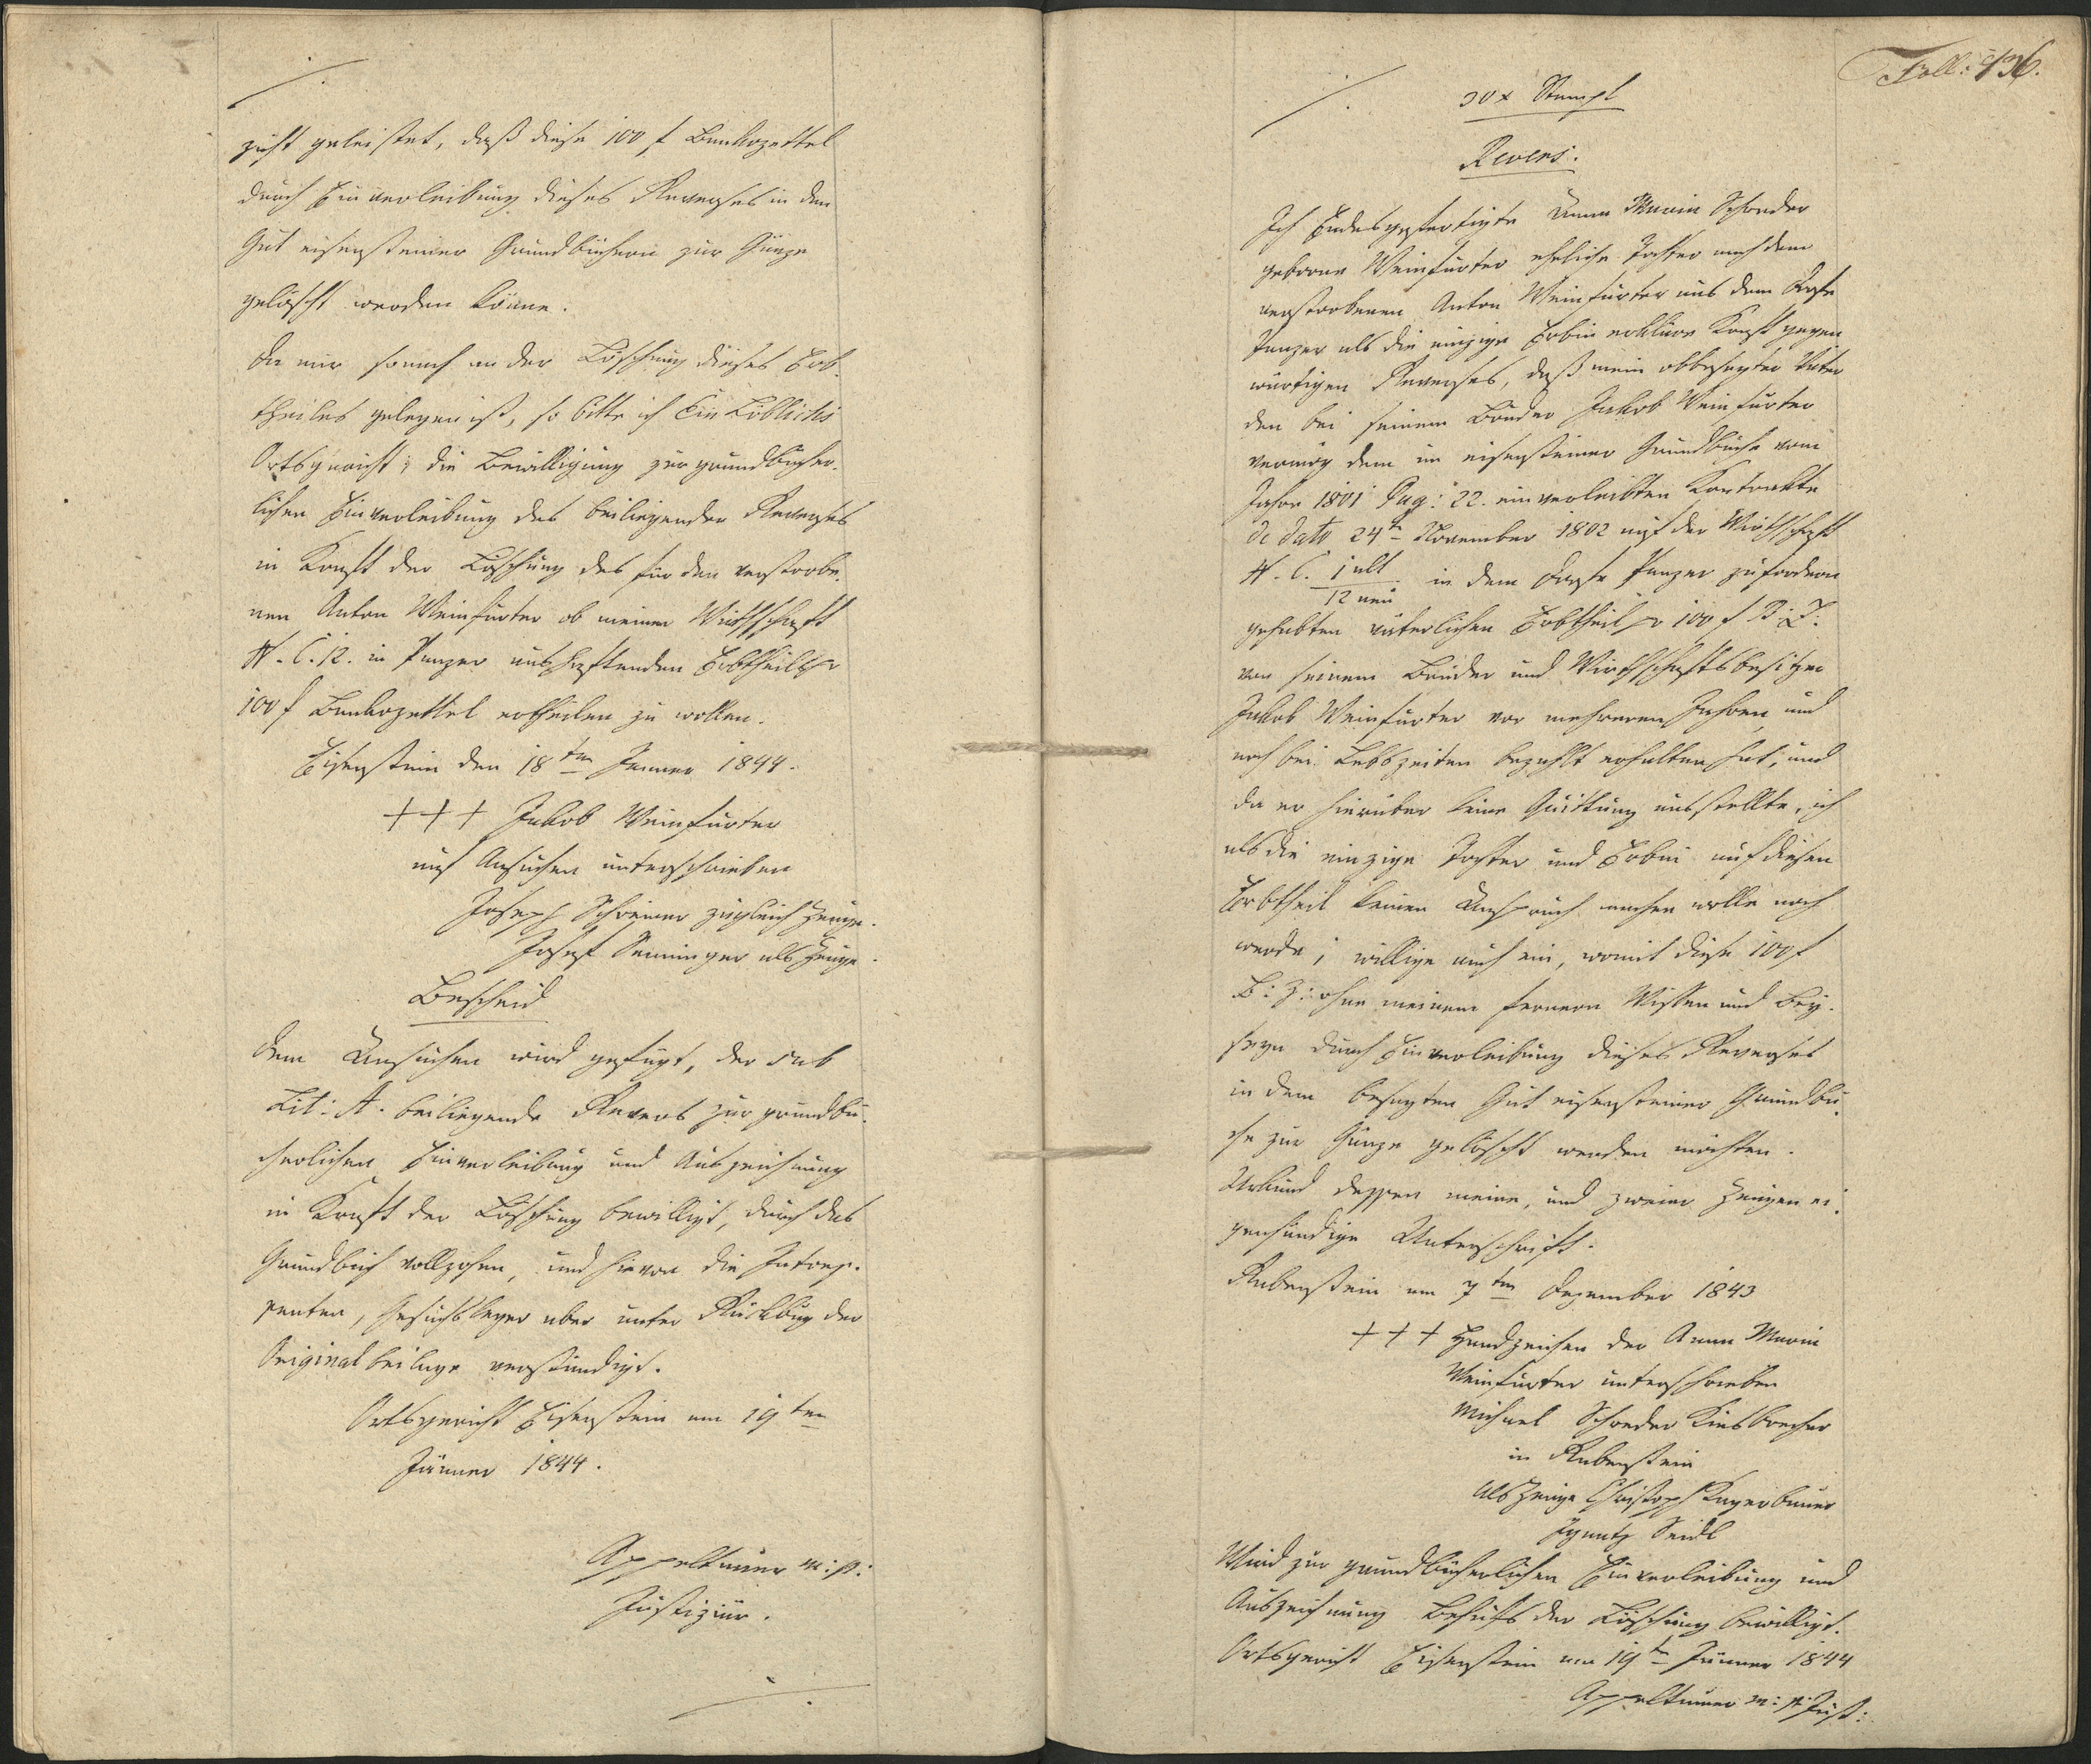 zicht geleistet, daß diese 100 f Bankozettel
durch Einverleibung dieses Reverses in den
Gut eisensteiner Grundbüchern zur Gänze
gelöscht werden könne.
Da mir sonach an der Löschung dieses Erb-
theiles gelegen ist, so bitte ich Ein Löbliches
Ortsgericht, die Bewilligung zur grundbücher-
lichen Einverleibung des beiliegenden Reverses
in Kraft der Löschung des für den verstorbe-
nen Anton Weinfurter ob meiner Wirthschaft
N. C. 12. in Panzer aushaftenden Erbtheils pr
100 f Bankozettel ertheilen zu wollen.
Eisenstein den 18ten Jenner 1844.
+++ Jakob Weinfurter
auf Ansuchen unterschrieben
Joseph Schreiner zugleich Zeuge.
Josef Seminger als Zeuge.
Bescheid
Dem Ansuchen wird gefügt, der sub
Lit: A. beiliegende Revers zur grundbü-
cherlichen Einverleibung und Auszeichnung
in Kraft der Löschung bewilligt, durch das
Grundbuch vollzohen, und hievon die Interes-
senten, Gesuchsleger aber unter Rückbug der
Originalbeilage verständigt.
Ortsgericht Eisenstein am 19ten
Jänner 1844.
Appeltauer m: p:
Justiziär.
Foll: 436.
30 x Stempl
Revers.
Ich Endesgefertigte Anna Maria Schreder
geborne Weinfurter eheliche Tochter nach dem
verstorbenen Anton Weinfurter aus dem Dorfe
Panzer als die einzige Erbin erkläre Kraft gegen-
wärtigen Reverses, daß mein obbesagter Vater
den bei seinem Bruder Jakob Weinfurter
vermög dem im eisensteiner Grundbuche vom
Jahre 1801 Pag: 22. einverleibten Kontrakte
de dato 24t November 1802 auf der Wirthschaft
N. C. 1 alt / 12 neu in dem Dorfe Panzer zu fordern
gehabten väterlichen Erbtheil pr 100 f B: Z:
von seinem Bruder und Wirthschaftsbesitzer
Jakob Weinfurter vor mehreren Jahren, und
noch bei Lebszeiten bezahlt erhalten hat, und
da er hierüber keine Quittung ausstellte, ich
als die einzige Tochter und Erbin auf diesen
Erbtheil keinen Anspruch machen wolle noch
werde; willige auch ein, womit diese 100 f
B: Z: ohne meinem fernern Wissen und Bey-
seyn durch Einverleibung dieses Reverses
in dem besagten Gut eisensteiner Grundbu-
che zur Gänze gelöscht werden möchten.
Urkund dessen meine, und zweier Zeugen ei-
genhändige Unterschrift.
Rabenstein am 7ten Dezember 1843
+++ Handzeichen der Anna Maria
Weinfurter unterschrieben
Michael Schreder Kiesbrecher
in Rabenstein
als Zeuge Christoph Kagerbauer
Ignatz Seidl
Wird zur grundbücherlichen Einverleibung und
Auszeichnung Behufs der Löschung bewilligt.
Ortsgericht Eisenstein am 19t Jänner 1844
Appeltauer m: p: Just: